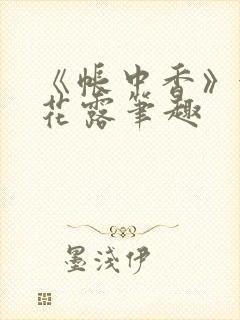 《帐中香》
花露笔趣
墨浅伊